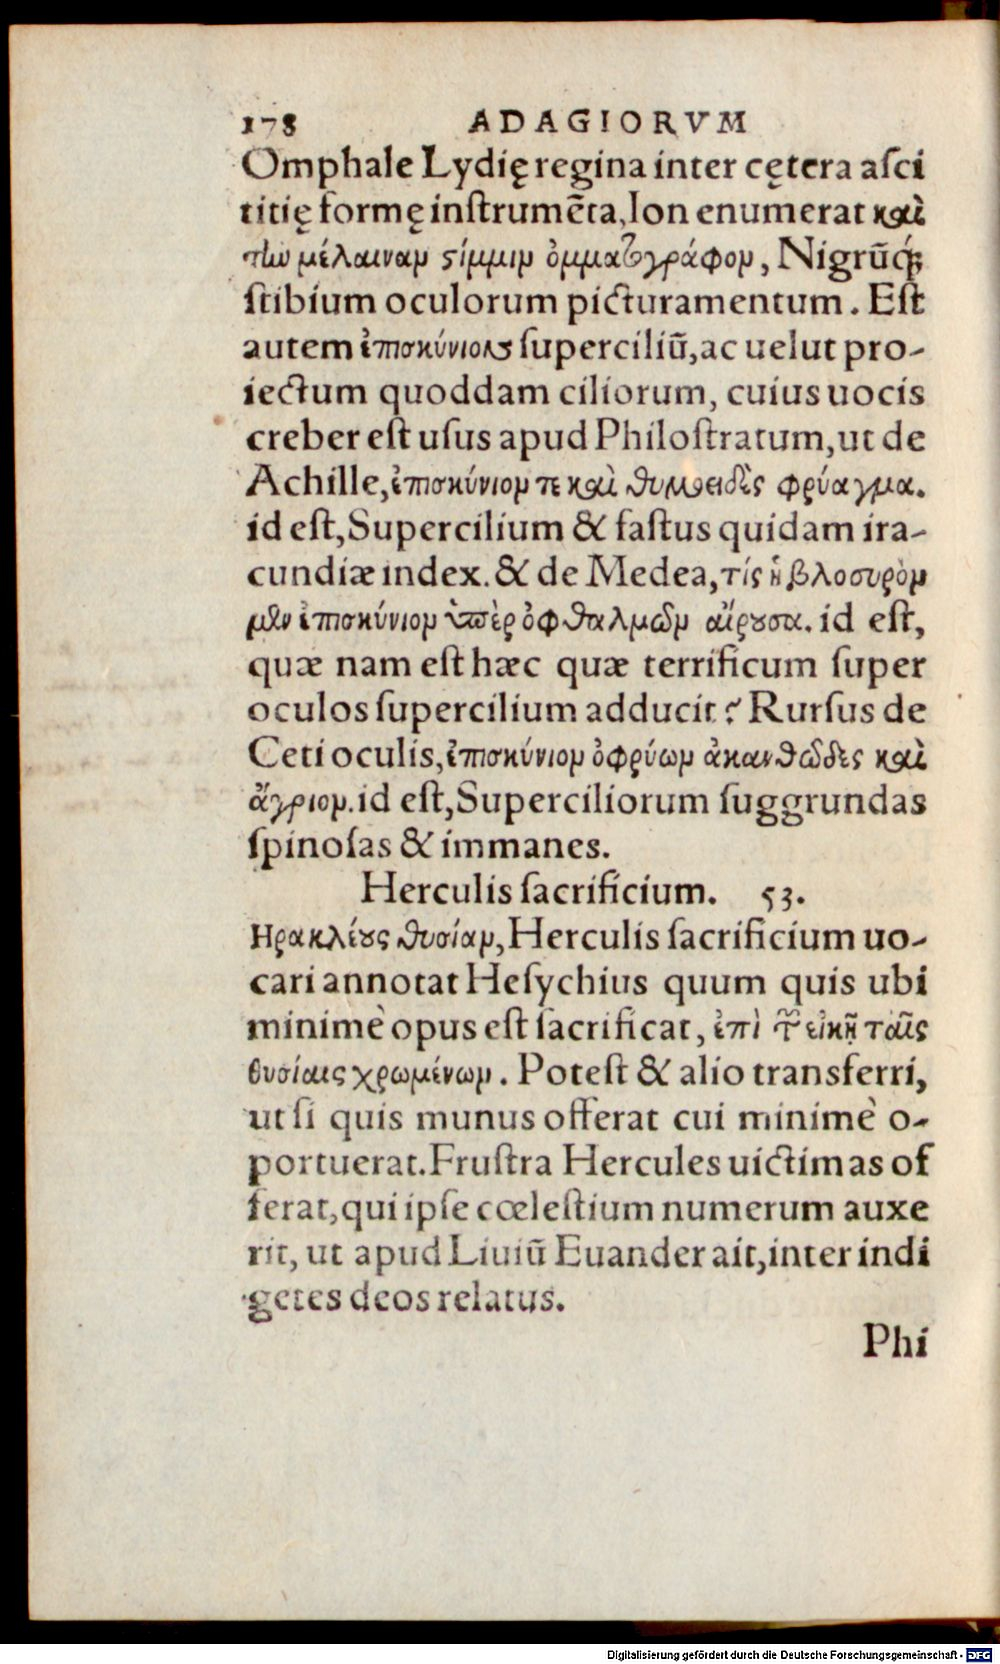 178 ADAGIORVM
Omphale Lydię regina inter cętera aſci
titię formę inſtrumẽta, Ion enumerat καὶ
τὴν μέλαιναν ϛίμμιν ὀμματογράφον, Nigrũq́;
ſtibium oculorum picturamentum. Eſt
autem ἐπισκύνιον ſuperciliũ, ac uelut pro-
iectum quoddam ciliorum, cuius uocis
creber eſt uſus apud Philoſtratum, ut de
Achille, ἐπισκύνιον τε καὶ θυμοειδὲς φρύαγμα.
id eſt, Supercilium & faſtus quidam ira-
cundiæ index. & de Medea, τίς ἡ βλοσυρὸν
μὲν ἐπισκύνιον ὑπὲρ ὀφθαλμῶν αἴρουσα. id eſt,
quæ nam eſt hæc quæ terrificum ſuper
oculos ſupercilium adducit? Rurſus de
Ceti oculis, ἐπισκύνιον ὀφρύων ἀκανθῶδες καὶ
ἄγριον. id eſt, Superciliorum ſuggrundas
ſpinoſas & immanes.
Herculis ſacrificium. 53.
Ηρακλέους θυσίαν, Herculis ſacrificium uo-
cari annotat Heſychius quum quis ubi
minimè opus eſt ſacrificat, ἐπὶ τῶν εἰκῆ ταῖς
θυσίαις χρωμένων. Poteſt & alio transferri,
ut ſi quis munus offerat cui minimè o-
portuerat. Fruſtra Hercules uictimas of
ferat, qui ipſe cœleſtium numerum auxe
rit, ut apud Liuiũ Euander ait, inter indi
getes deos relatus.
Phi
Digitalisierung gefördert durch die Deutsche Forschungsgemeinschaft - DFG